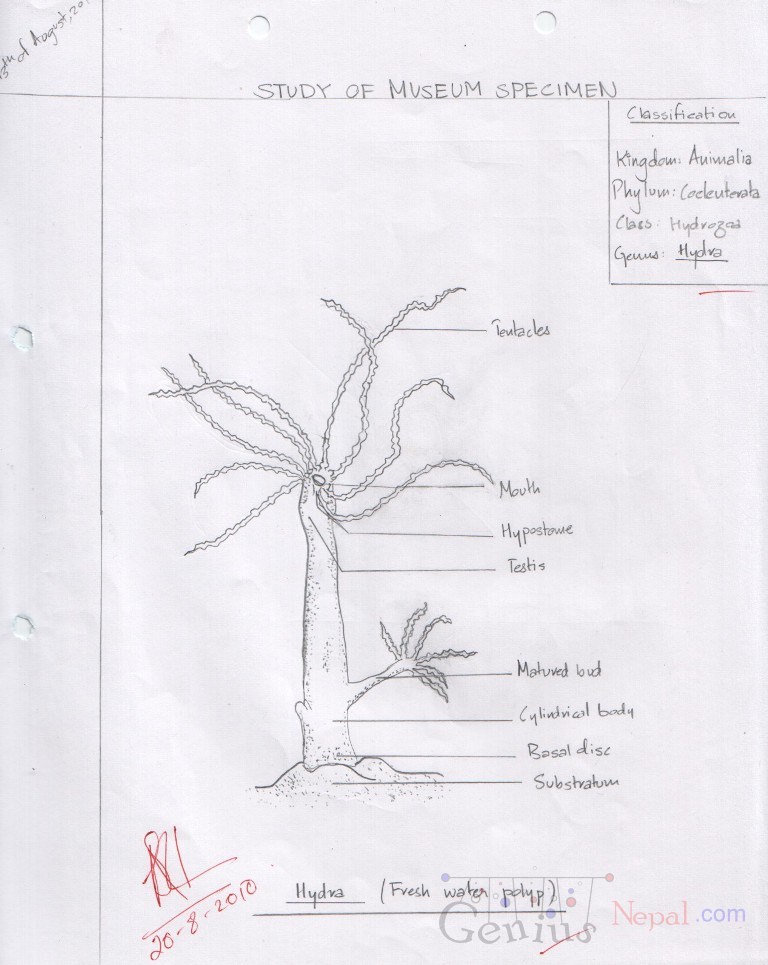 13th of August, 201
STUDY OF MUSEUM SPECIMEN
Classification
Kingdom: Animalia
Phylum: Coelenterata
Class: Hydrozoa
Genus: Hydra
Tentacles
Mouth
Hypostome
Testis
Matured bud
Cylindrical body
Basal disc
Substratum
20-8-2010
Hydra (Fresh water polyp)
Genius Nepal.com